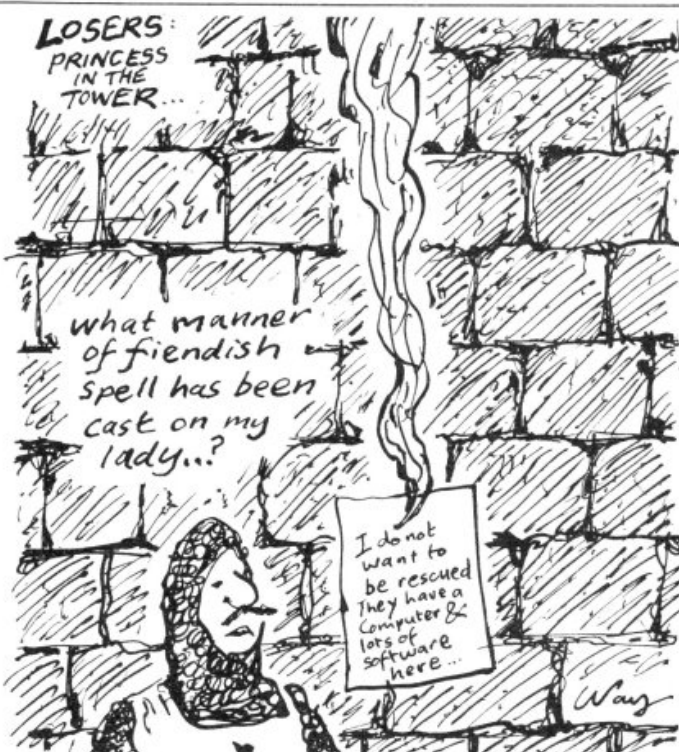 LOSERS:
PRINCESS
IN THE
TOWER...
what manner
of fiendish
spell has been
cast on my
lady...?
I do not
want to
be rescued
They have a
Computer &
lots of
software
here...